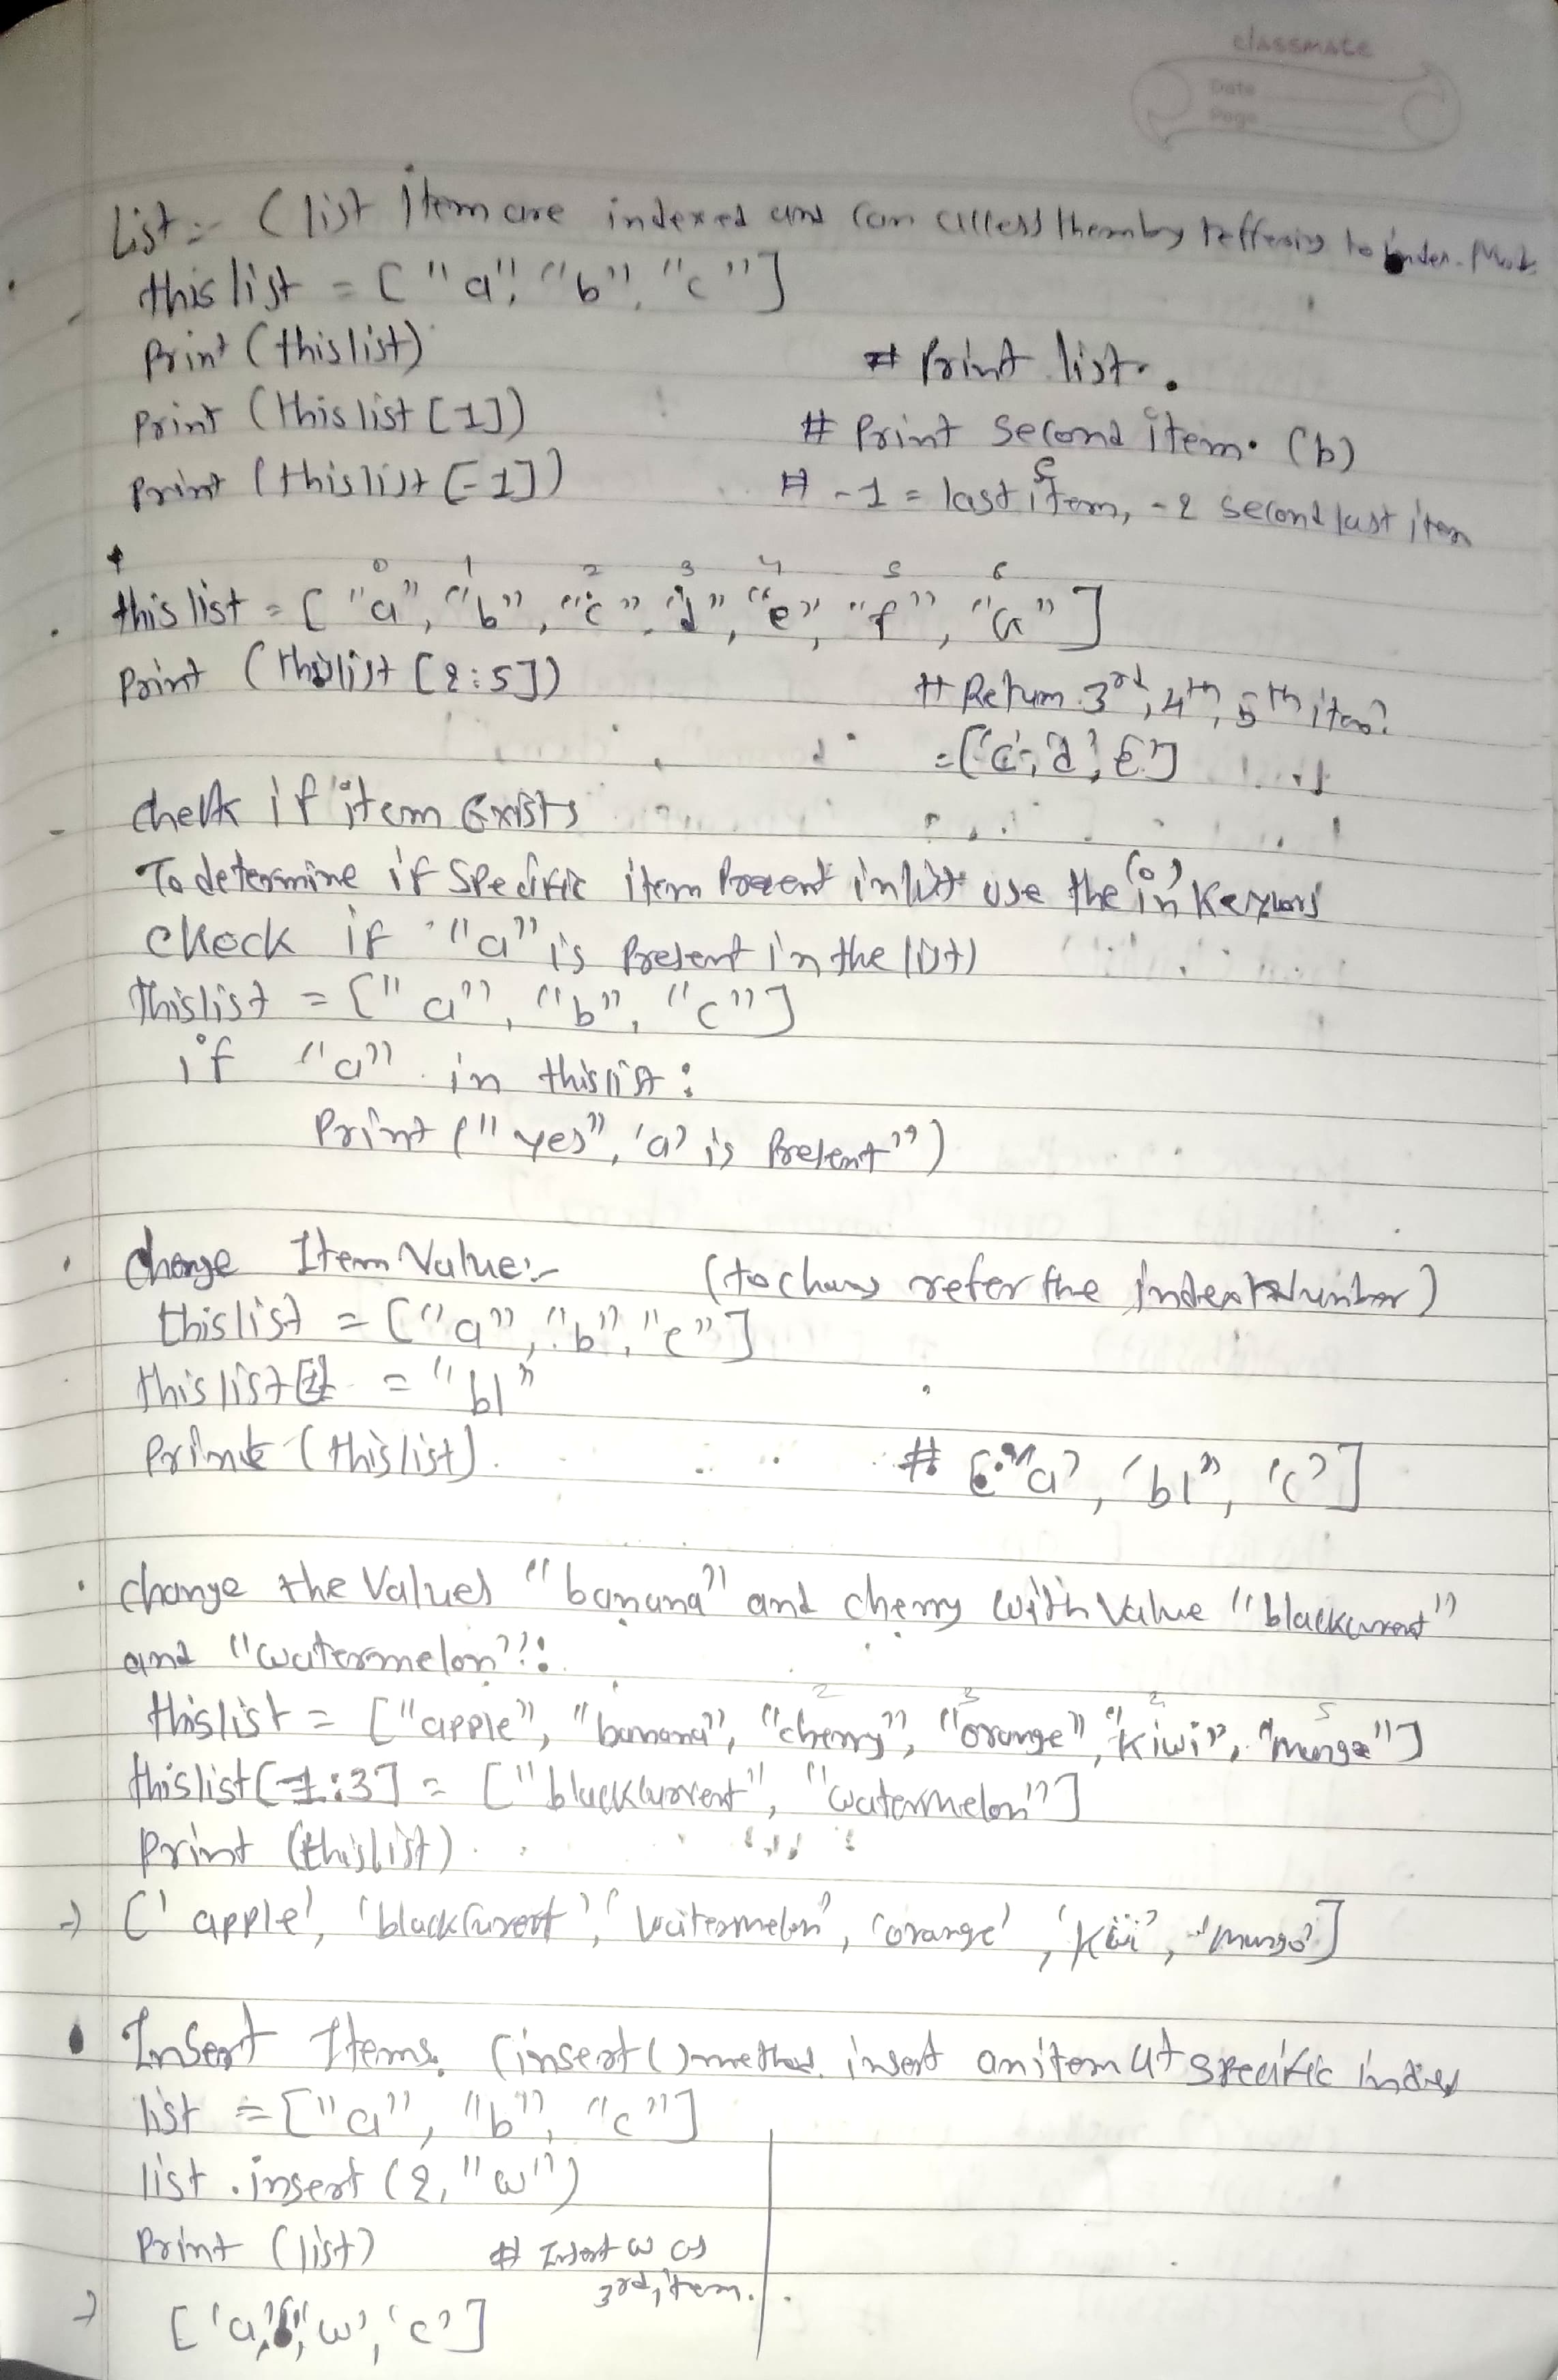 classmate
Date
Page
List :- ( list Item are indexed and can access them by reffering to index. Num
this list = ["a", "b", "c"]
Print (this list) # Print list.
Print (this list [1]) # Print Second item. (b)
c
Print (this list [-1]) # -1 = last item, -2 second last item
0 1 2 3 4 5 6
this list = ["a", "b", "c", "d", "e", "f", "G"]
Print (thislist [2:5]) # Return 3rd, 4th, 5th item
= ['c', 'd', 'E']
check if item Exists
To determine if Specific item Present in list use the 'in' Keyword
check if "a" is Present in the list)
thislist = ["a", "b", "c"]
if "a" in this list :
Print (" yes", 'a' is Present")
change Item Value :- (to change refer the index Number)
this list = ["a", "b", "c"]
this list [1] = "b1"
Print (this list) # ["a', 'b1", 'c']
change the Values "banana" and cherry with value "blackcurrent"
and "watermelon":
2 3 4 5
this list = ["apple", "banana", "cherry", "orange", "Kiwi", "mango"]
this list [1:3] = ["blackcurrent", "watermelon"]
Print (this list)
→ ['apple', 'blackcurrent', 'watermelon', 'orange', 'Kiwi', 'mango']
Insert Items. (insert () method insert an item at specific index
list = ["a", "b", "c"]
list . insert (2, "w")
Print (list) # Insert w as
3rd item.
→ ['a', 'b', 'w', 'c']